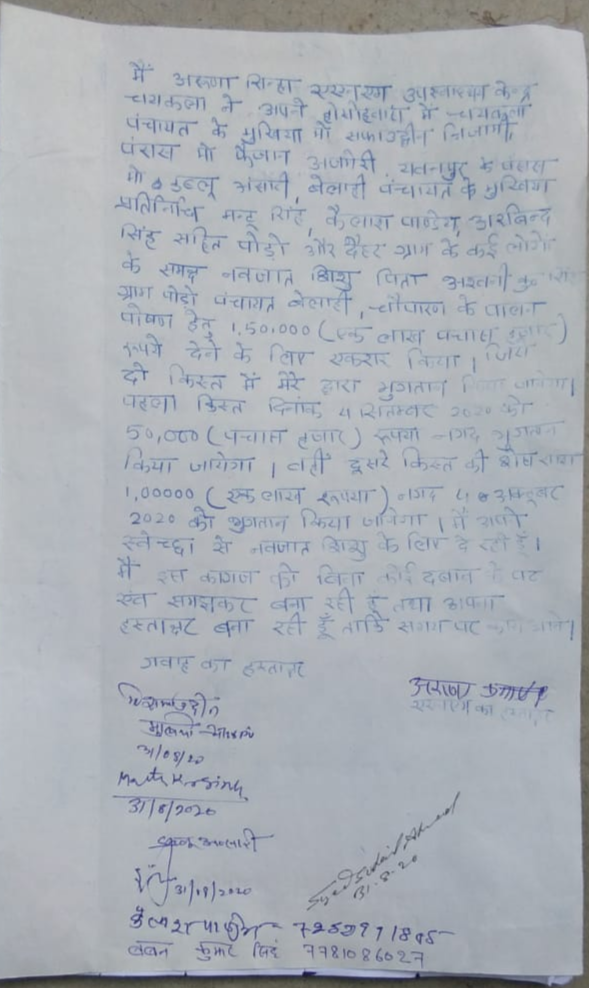 मैं अरुणा सिन्हा एएनएम उपस्वास्थ्य केन्द्र
चयकला ने अपने होशोहवास में चयकला
पंचायत के मुखिया मो सफाउद्दीन निजामी,
पंसस मो फैजान अजमेरी, यवनपुर के पंसस
मो डब्लू अंसारी, बेलाही पंचायत के मुखिया
प्रतिनिधि मन्टू सिंह, कैलाश पाण्डेय, अरबिन्द
सिंह सहित पोड़ो और दैहर ग्राम के कई लोगों
के समक्ष नवजात शिशु पिता अश्वनी कु०
ग्राम पोड़ो पंचायत बेलाही, चौपारण के पालन
पोषण हेतु 1,50,000 (एक लाख पचास हजार)
रूपये देने के लिए एकरार किया। जिसे
दो किस्त में मेरे द्वारा भुगतान किया जायेगा।
पहला किस्त दिनांक 4 सितम्बर 2020 को
50,000 (पचास हजार) रूपया नगद भुगतान
किया जायेगा। वहीं दूसरे किस्त की शेष राशि
1,00000 (एक लाख रूपया) नगद 4 अक्टूबर
2020 को भुगतान किया जायेगा। मैं अपनी
स्वेच्छा से नवजात शिशु के लिए दे रही हूँ।
मैं इस कागज को बिना कोई दबाव के पढ़
एवं समझकर बना रही हूँ तथा अपना
हस्ताक्षर बना रही हूँ ताकि समय पर काम आवे।
गवाह का हस्ताक्षर
एएनएम का हस्ताक्षर
31/08/20
31/8/2020
डबलू अन्सारी
31/08/2020
31.8.20
कैलाश पाण्डेय
ललन कुमार सिंह 7781086027